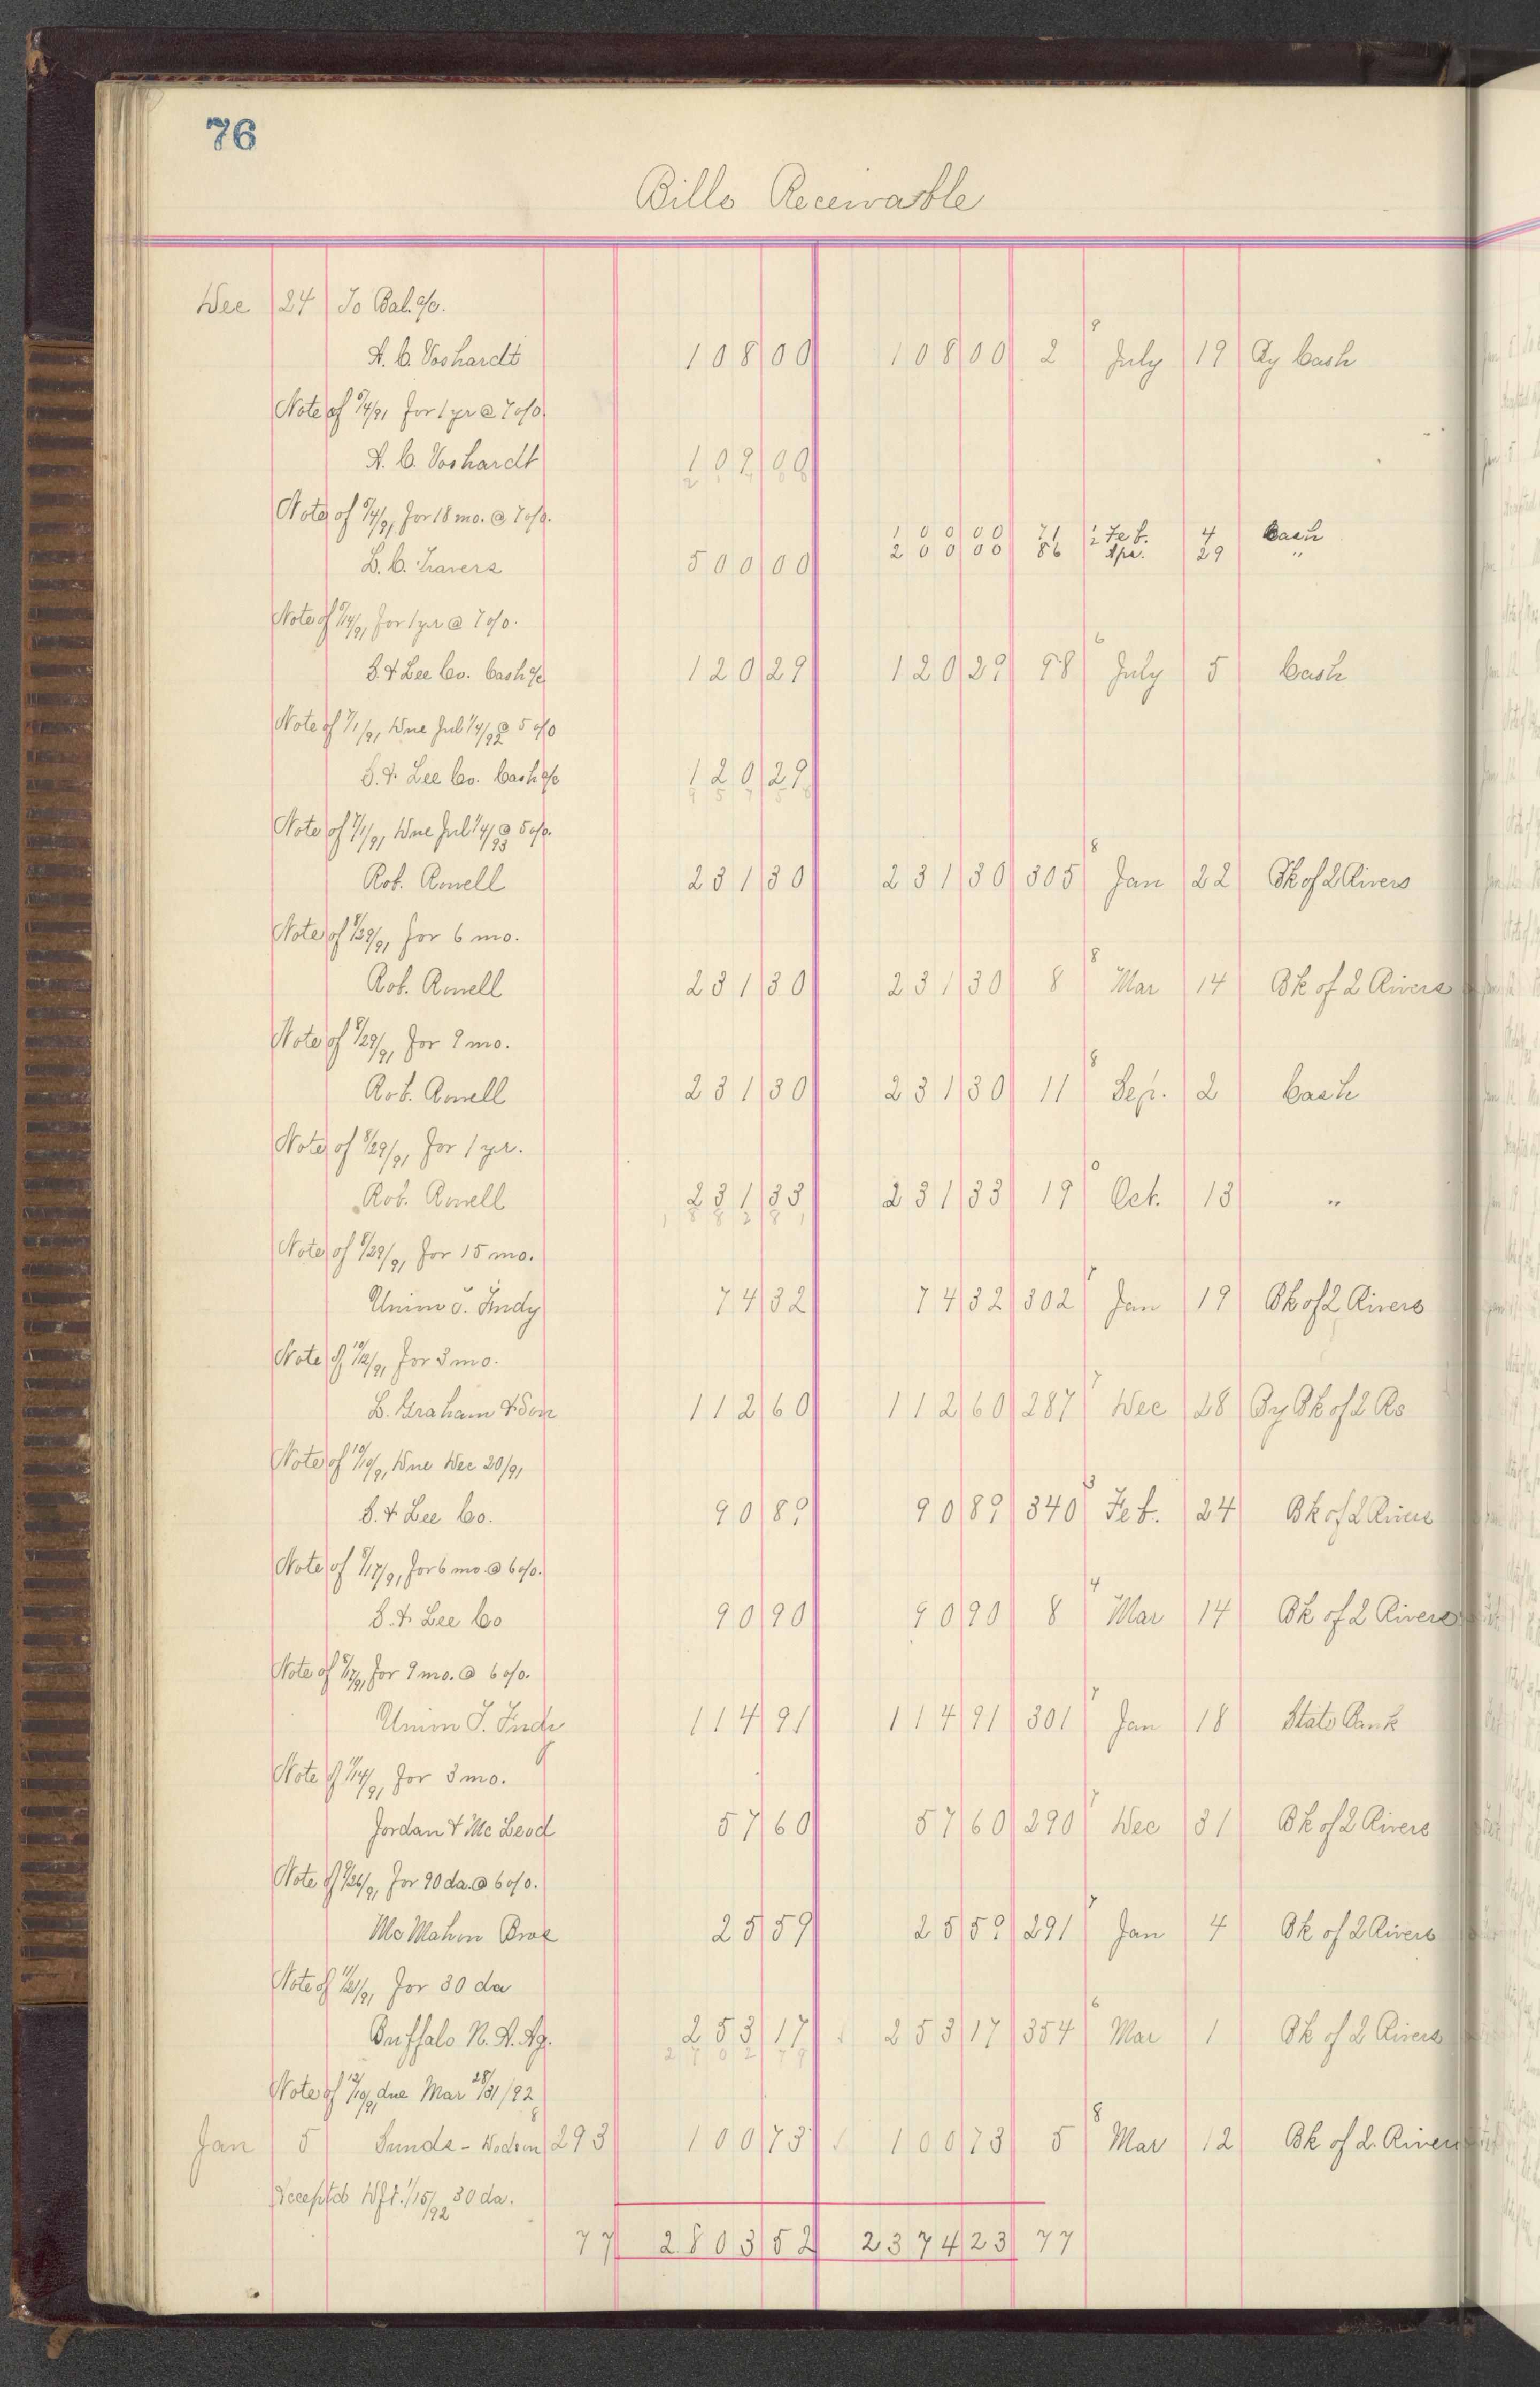 76
Bills Receivable
Dec 24 To Bal. a/c.
A. C. Voshardt 108 00 108 00 2 8 July 19 By Cash
Note of 5/4/91 for 1 yr @ 7 o/o.
A. C. Voshardt 109 00
Note of 5/4/91 for 18 mo. @ 7 o/o.
100 00 71 2 Feb. 4 Cash
200 00 86 Apr. 29 "
L. C. Travers 500 00
Note of 5/14/91 for 1 yr @ 7 o/o.
S. & Lee Co. Cash a/c 120 29 120 29 98 6 July 5 Cash
Note of 7/1/91 Due Jul 1/4/92 @ 5 o/o
S. & Lee Co. Cash a/c 120 29
957 58
Note of 7/1/91 Due Jul 1/4/93 @ 5 o/o.
Rob. Rowell 231 30 231 30 305 8 Jan 22 Bk of 2 Rivers
Note of 8/29/91 for 6 mo.
Rob. Rowell 231 30 231 30 8 8 Mar 14 Bk of 2 Rivers
Note of 8/29/91 for 9 mo.
Rob. Rowell 231 30 231 30 11 8 Sep. 2 Cash
Note of 8/29/91 for 1 yr.
Rob. Rowell 231 33 231 33 19 Oct. 13 "
1882 81
Note of 8/29/91 for 15 mo.
Union S. Fndy 74 32 74 32 302 7 Jan 19 Bk of 2 Rivers
Note of 10/12/91 for 3 mo.
L. Graham & Son 112 60 112 60 287 7 Dec 28 By Bk of 2 Rs
Note of 10/10/91 Due Dec 20/91
S. & Lee Co. 90 89 90 89 340 3 Feb. 24 Bk of 2 Rivers
Note of 8/17/91 for 6 mo @ 6 o/o.
S. & Lee Co 90 90 90 90 8 4 Mar 14 Bk of 2 Rivers
Note of 8/17/91 for 9 mo. @ 6 o/o.
Union S. Fndy 114 91 114 91 301 7 Jan 18 State Bank
Note of 11/14/91 for 3 mo.
Jordan & Mc Leod 57 60 57 60 290 7 Dec 31 Bk of 2 Rivers
Note of 9/26/91 for 90 da. @ 6 o/o.
Mc Mahon Bros 25 59 25 59 291 7 Jan 4 Bk of 2 Rivers
Note of 11/21/91 for 30 da
Buffalo N. A. Ag. 253 17 253 17 354 6 Mar 1 Bk of 2 Rivers
2702 79
Note of 12/10/91 due Mar 28/31/92
Jan 5 Sunds - Dodson 293 100 73 100 73 5 8 Mar 12 Bk of 2 Rivers
Acceptd Dft. 1/15/92 30 da.
77 2803 52 2374 23 77